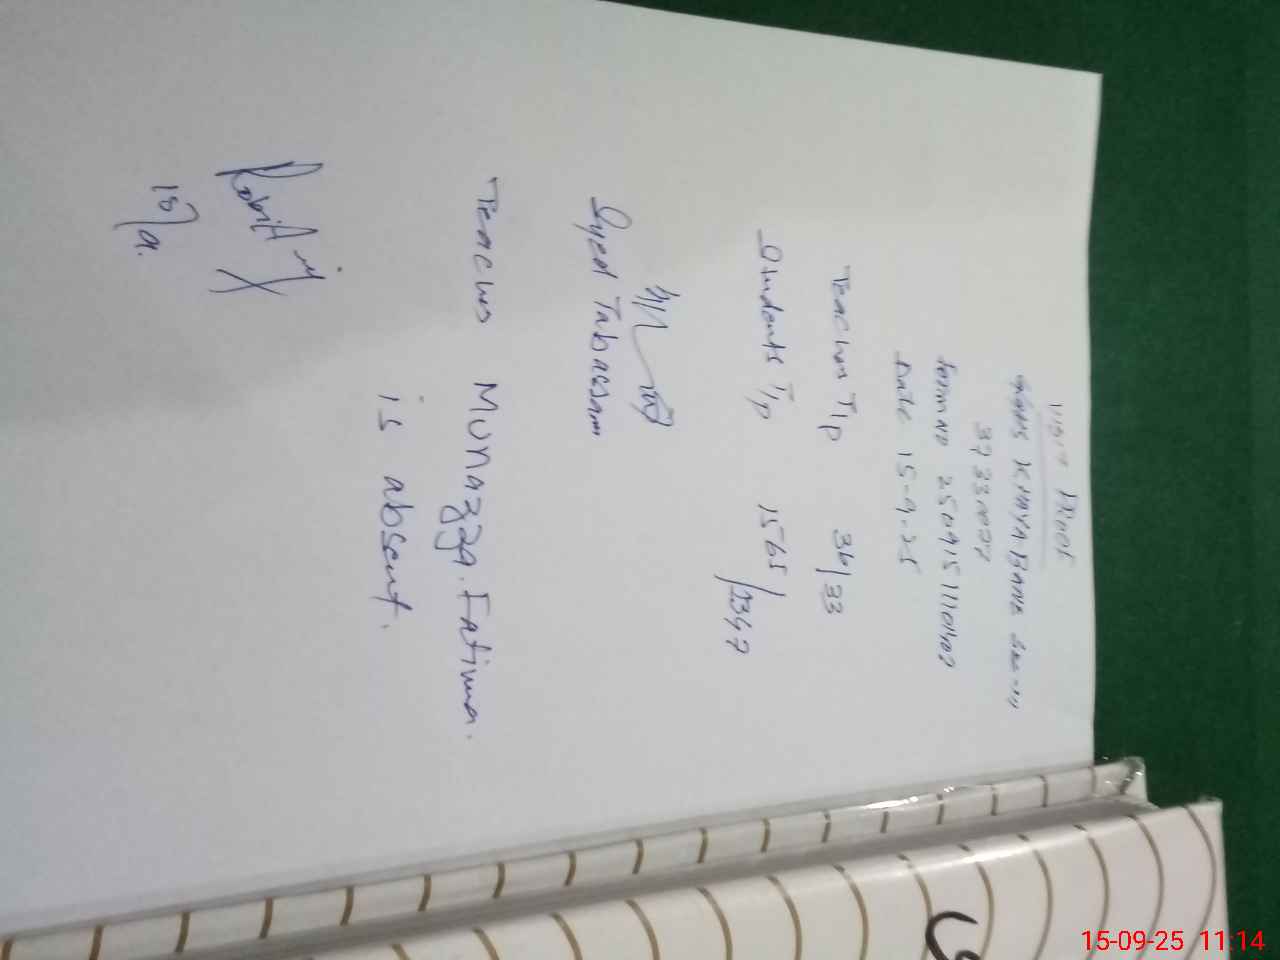 Visit Proof
GGHSS KHAYABANE
37330027
form NO 250915111402
Date 15-9-25
Teacher T/p 36/33
Students T/p 1565/1347
Syed Tabassam
Teacher Munazza Fatima.
is absent.
15/9.
15-09-25 11:14